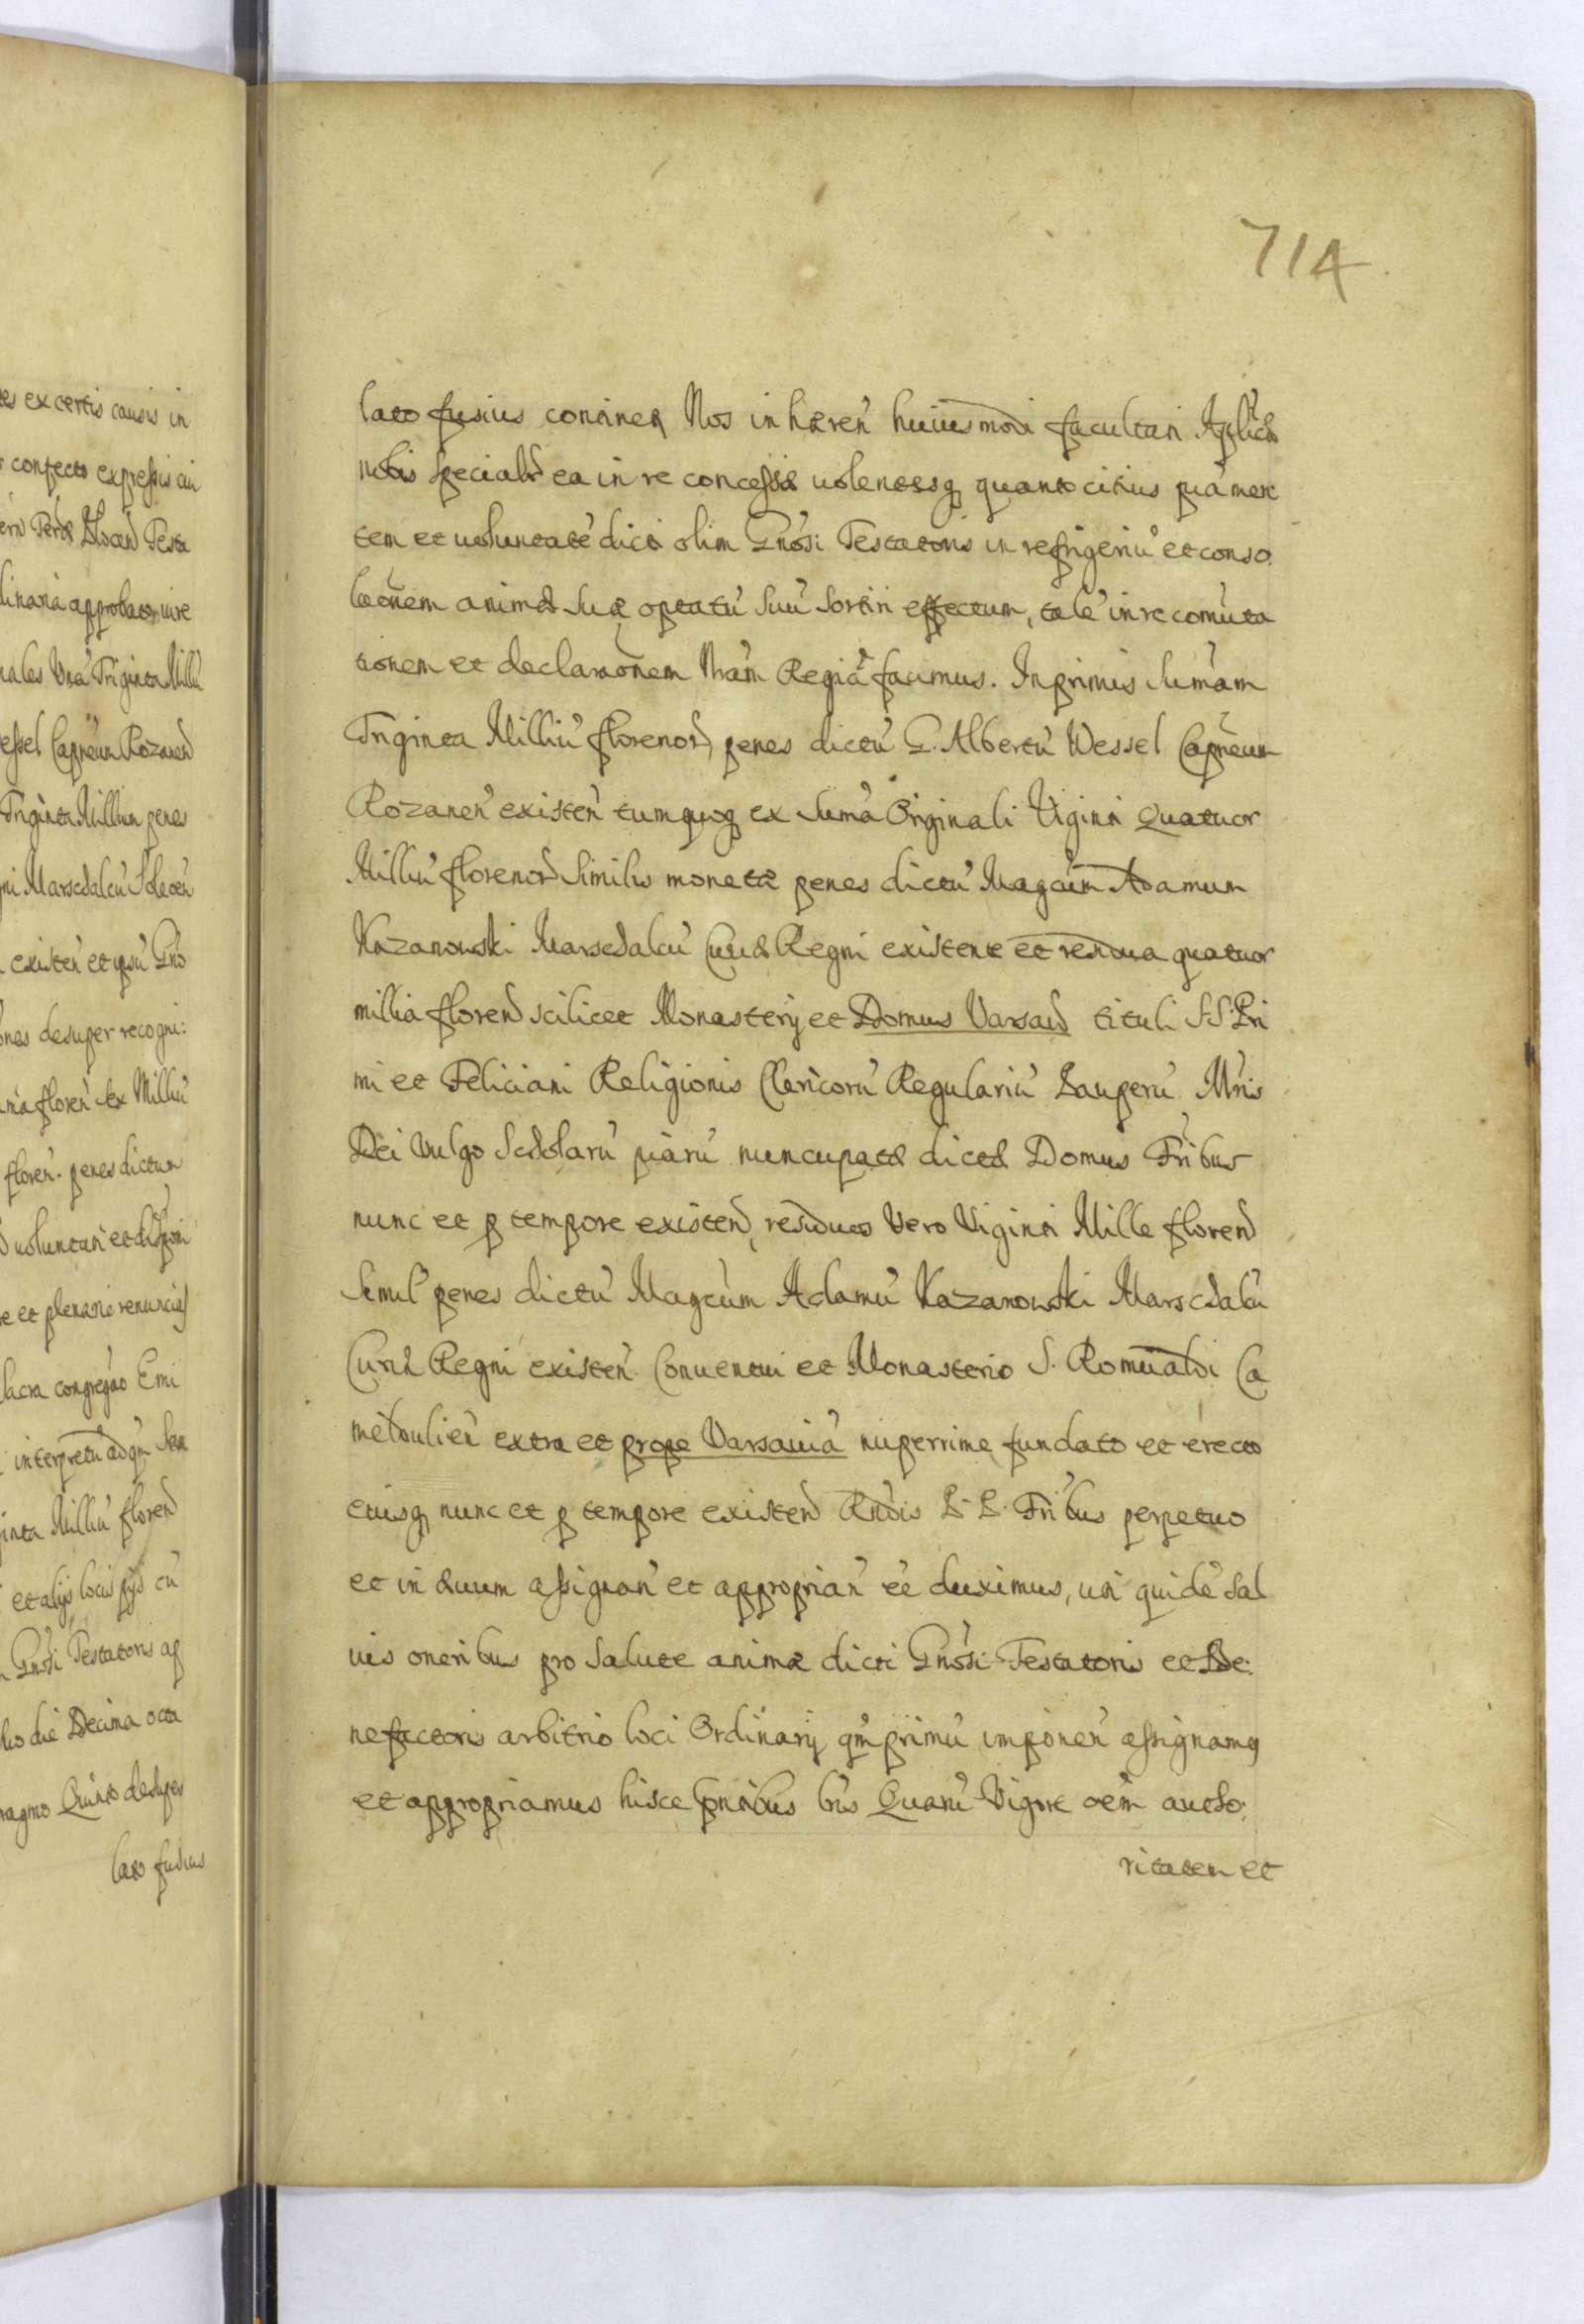 es ex certis causis in
confecto expressis cui
Testa
linaria approbato iure
nales Una Triginta Milliu
essel Capneum Rozanen
Triginta Millium penes
gni Marscalcu
existen et ipsu Gnō
ones desuper recogni:
ma floren sex Milliu
floren. penes dictum
voluntati et disponi
e et plenarie renuncias
sacra congregāo Emi
interpretū
inta Milliu floren
et alijs locis pijs cu
Gnōsi Testatoris ap
lio die Decima octa
ragmo Quinto desuper
lato fusius
714
lato fusius continer Nos inhæren̄ huiusmodi facultati Aplicæ
nobis specialr ea in re concessæ volentesq quanto citius piā men
tem et voluntatē dicti olim Gnōsi Testatoris in refrigeriū et conso
laōnem animæ suæ optatū suū sortiri effectum, talē in re comuta
tionem et declaraōnem Nrām Regiā facimus. Inprimis sumam
Triginta Milliū florenor penes dictū G. Albertū Wessel Capneum
Rozanen̄ existen̄ tumquoq ex suma Originali Viginti Quatuor
Milliū florenor similis monetæ penes dictū Magcum Adamum
Kazanowski Marschalcū Curiæ Regni existente et residua quatuor
millia floren scilicet Monasterij et Domus Varsavi tituli SS. Pri
mi et Feliciani Religionis Clericorū Regulariū Pauperū Mris
Dei vulgo Scholarū piarū nuncupatæ dictæ Domus Fribus
nunc et p tempore existen, residuos vero Viginti Mille floren
simil penes dictū Magcum Adamū Kazanowski Marschalcū
Curiæ Regni existen̄ Conventui et Monasterio S. Romualdi Ca
meduliēn extra et prope Varsaviā nuperrime fundato et erecto
eiusq nunc et p tempore existen Rndis P. P. Fribus perpetuo
et in ævum assignan̄ et approprian̄ ee duximus, uti quidē sal
vis oneribus pro salute animæ dicti Gnōsi Testatoris et Be
nefactoris arbitrio loci Ordinarij qm primū imponen̄ assignamq
et appropriamus hisce pntibus lris Quarū Vigore oēm autho
ritatem et